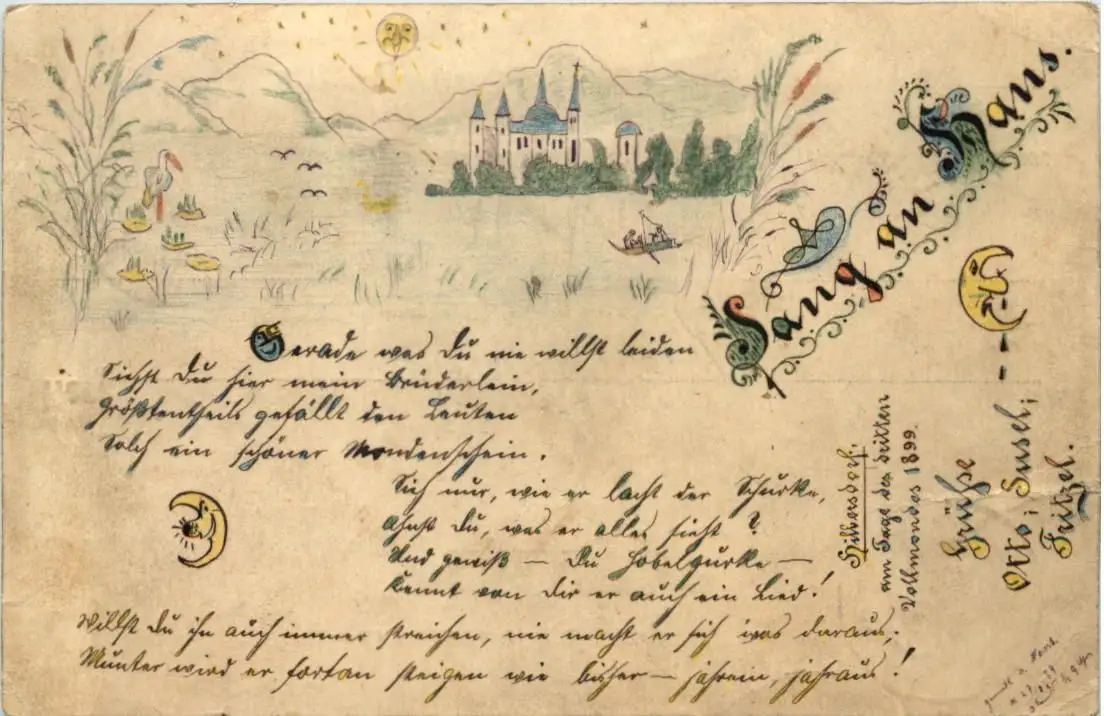 Sang an Hans.
Gerade was Du nie willst leiden
Siehst Du hier mein Brüderlein,
Größtentheils gefällt den Leuten
Solch ein schöner Mondenschein.
Sieh nur, wie er lacht der Schurke,
Ahnst Du, was er alles sieht?
Und gewiß – Du Hobelgurke –
Kennt von Dir er auch ein Lied!
Willst Du ihn auch immer streichen, nie macht er sich was daraus;
Munter wird er fortan steigen wie bisher – jahrein, jahraus!
Hilbersdorf.
am Tage des dritten
Vollmondes 1899.
Grüße
Otto; Susel;
Fritzel.